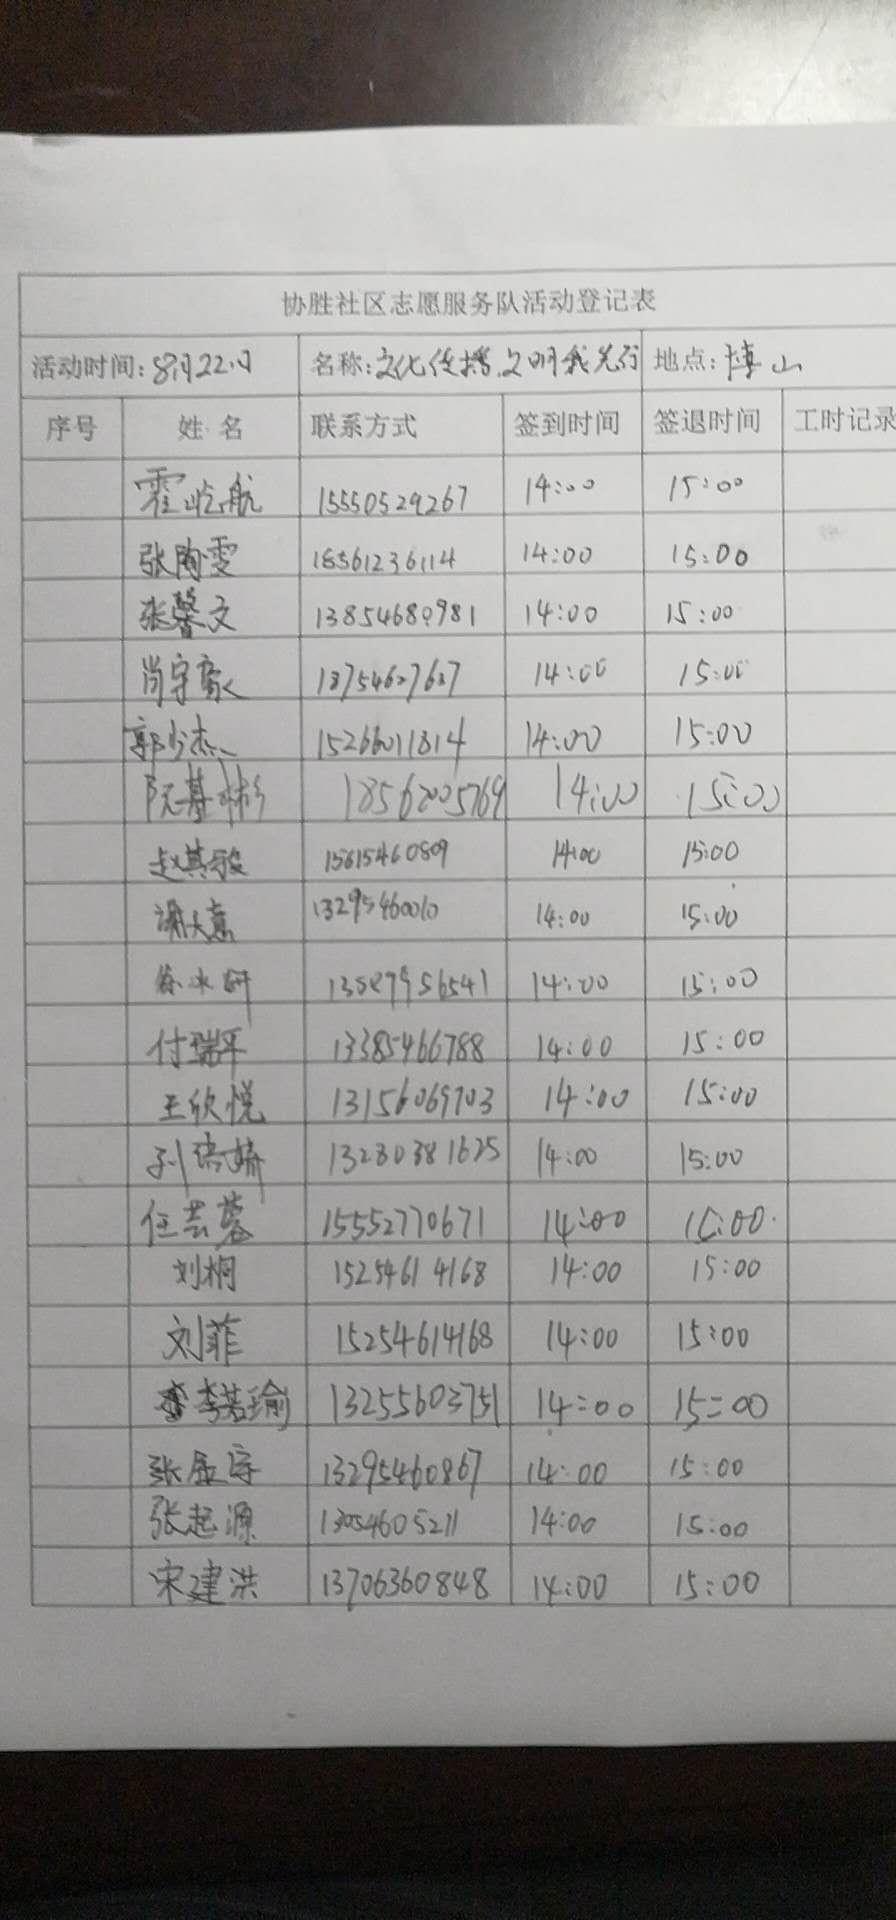 协胜社区志愿服务队活动登记表
活动时间:8月22日 名称:文化传播,文明我先行 地点:博山
序号 姓名 联系方式 签到时间 签退时间 工时记录
霍屹航 15550529267 14:00 15:00
张陶雯 18561236114 14:00 15:00
张馨文 13854680981 14:00 15:00
肖宇豪 14:00 15:00
郭少杰 15266011814 14:00 15:00
阮基彬 18562005769 14:00 15:00
赵其毅 15615460809 14:00 15:00
谢天意 13295460010 14:00 15:00
徐冰妍 14:00 15:00
付瑞平 13385466788 14:00 15:00
王欣悦 13156069703 14:00 15:00
孙培婧 13280381625 14:00 15:00
任芸蓉 15552770671 14:00 15:00
刘桐 15254614168 14:00 15:00
刘菲 15254614168 14:00 15:00
李若瑜 13255603751 14:00 15:00
张宇 13295460867 14:00 15:00
张起源 13054605211 14:00 15:00
宋建洪 13706360848 14:00 15:00